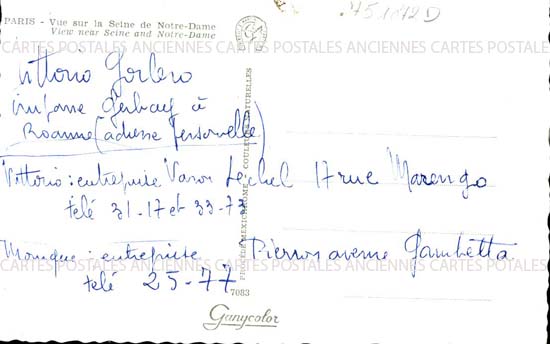 75.1842D
PARIS - Vue sur la Seine de Notre-Dame
View near Seine and Notre-Dame
CARTES POSTALES ANCIENNES CARTES POSTALES ANCIENNES CARTES POSTALES
Vittorio Gorlero
impasse à
Roanne (adresse personnelle)
Vittorio : entreprise 17 rue Marengo
télé 31-17 et 33-72
Monique : entreprise Pierros avenue Gambetta
CARTES POSTALES ANCIENNES CARTES POSTALES ANCIENNES CARTES POSTALES
télé 25-77
PROCÉDÉ MEXICHROME - COULEURS NATURELLES
7083
Ganycolor